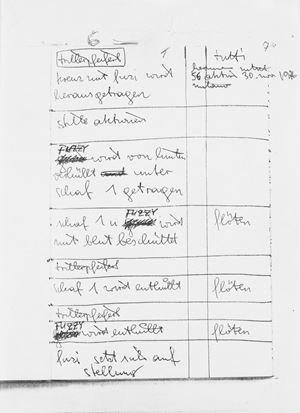 6
trillerpfeiferl
1
tutti
kreuz mit fuzi wird
herausgetragen
56 aktion 30. nov 1976
milano
stille aktionen
FUZZY
wird von hinten
unter
schaf 1 getragen
FUZZY
schaf 1 u wird
mit blut beschüttet
flöten
trillerpfeiferl
schaf 1 wird enthüllt
flöten
trillerpfeiferl
FUZZY
wird enthüllt
flöten
fuzi setzt sich auf
stellung